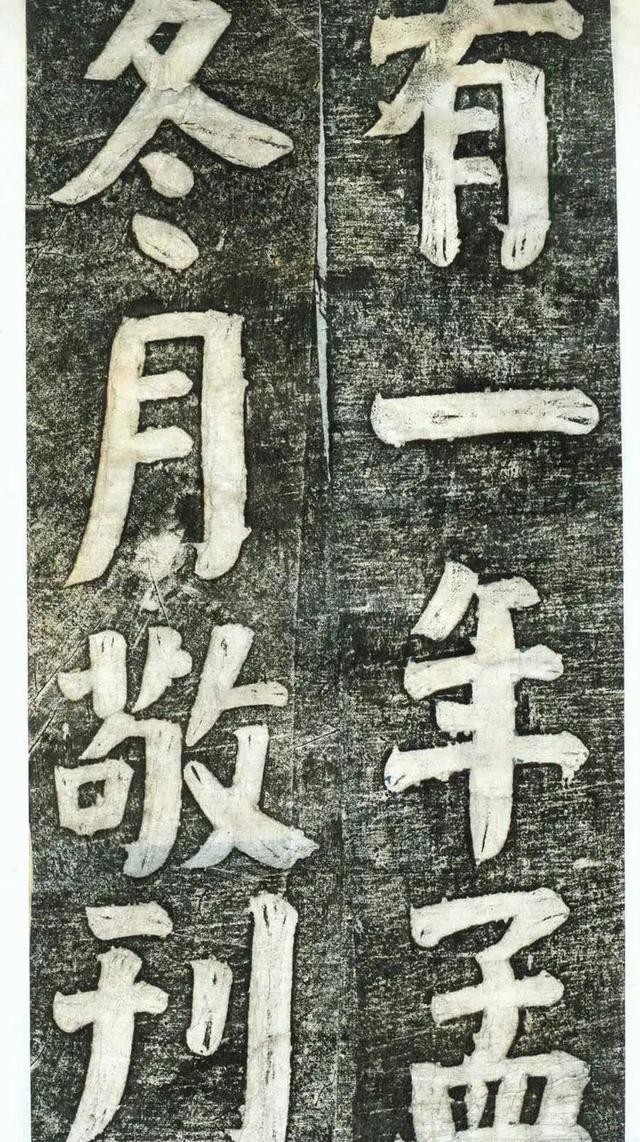 有一年孟
冬月敬刊